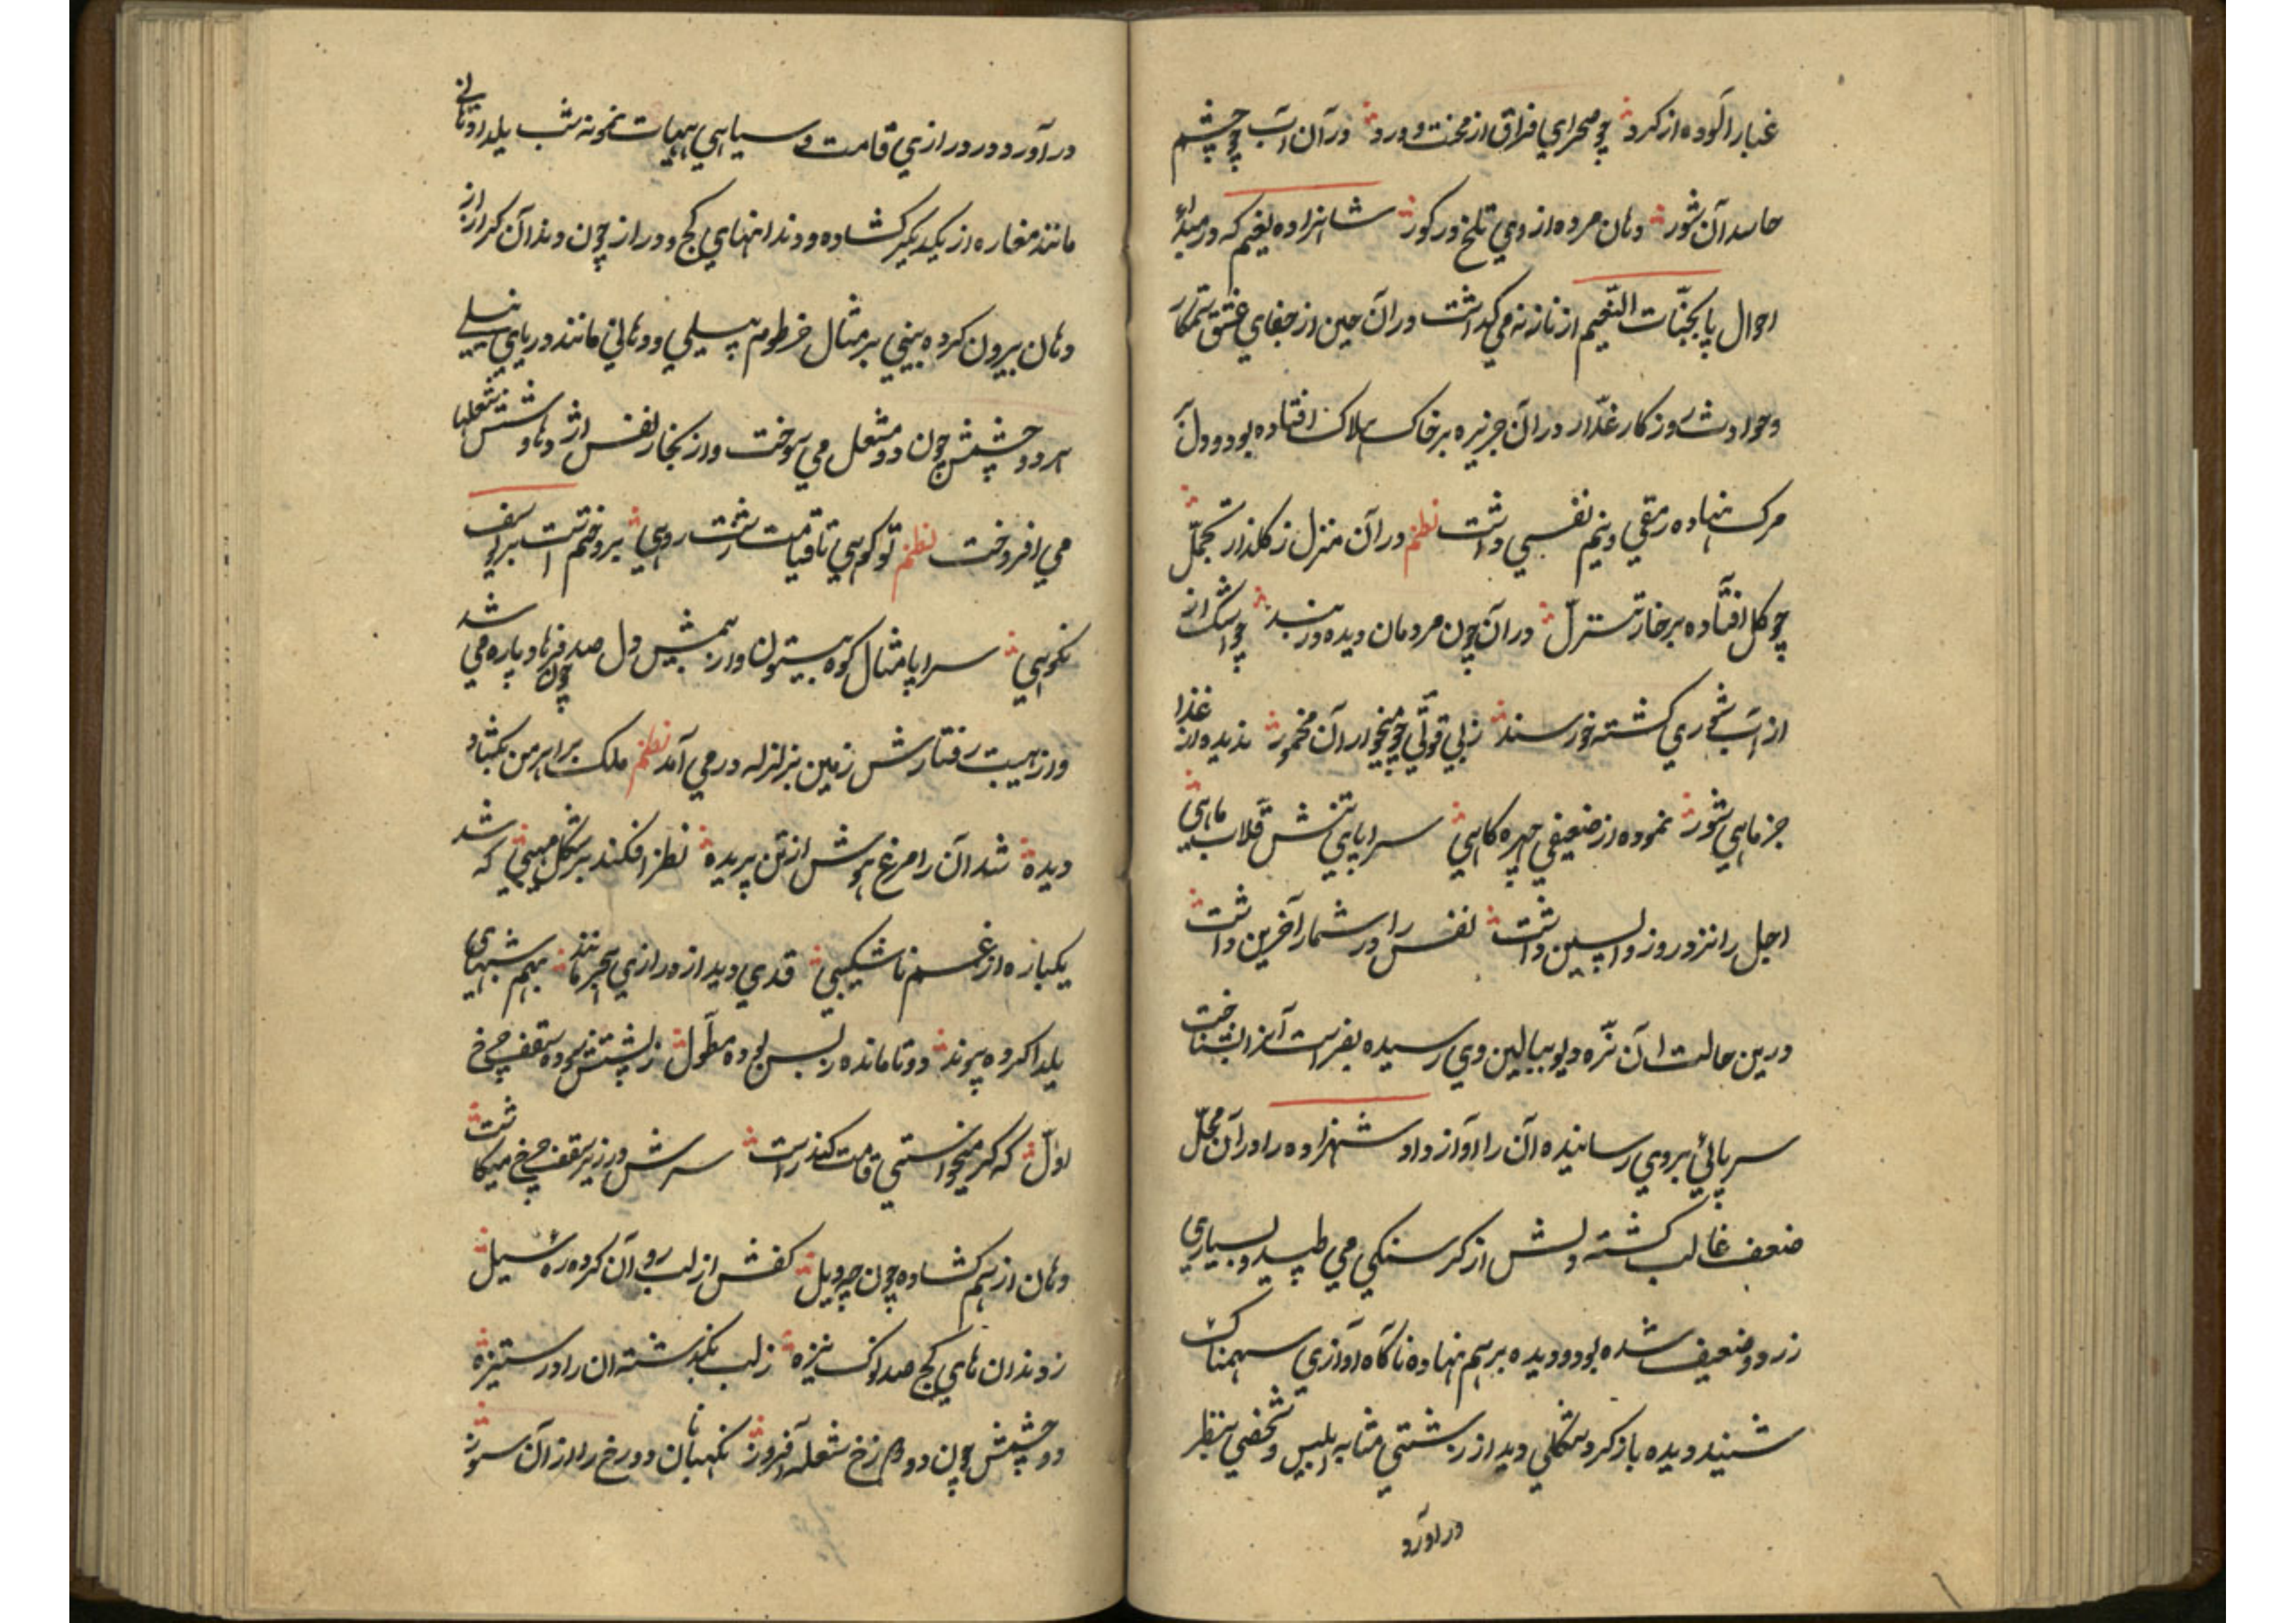 غبار آلوده از کرد چو صحرای فراق از محنت و درد در آن آب چو چشم
حاسد آن شور دهان مرده از وی تلخ در کور شاهزاده نعیم که در مبدأ
احوال پا بجنّات النّعیم از ناز نه می کذاشت در آن حین از جفای عشق ستمکار
و حوادث روزکار غدّار در آن جزیره بر خاک هلاک افتاده بود و دل
مرک نهاده رمقی و نیم نفسی داشت نظم در آن منزل ز کلذار تجمّل
چو کل افتاده بر خار تنزّل در آن چون مردمان دیده در بند چو اشک از
از آب شوری کشته خورسند ز بی قوتی چو میخوار آن مخمور ندیده از غذا
جز ماهی شور نموده از ضعیفی چهره کاهی سراپای تنش قلاب ماهی
اجل را نزد روز واپسین داشت نفس را در شمار آخرین داشت
درین حالت آن نرّه دیو ببالین وی رسیده بفراست آنرا بشناخت
سر پائی بروی رسانیده آن را آواز داد شهزاده را در آن محلّ
ضعف غالب کشته دلش از کرسنکی می طپید و بسیاری
زرد و ضعیف شده بود و دیده بر هم نهاده ناکاه آوازی سهمناک
شنید دیده باز کرد شکلی دید از زشتی مشابه ابلیس و شخصی بنظر
در آورد
در آورد و در درازی قامت و سیاهی هیات نمونه شب یلدا دهانی
مانند مغاره از یکدیکر کشاده و دندانهای کج و دراز چون دندان کراز از
دهان بیرون کرده بینی بر مثال خرطوم پیلی و دهانی مانند دریای نیلی
هر دو چشمش چون دو مشعل می سوخت و از بخار نفس اژدهاوشش شعلها
می افروخت نظم تو کوهی تا قیامت زشت رویی برو ختم است بر یوسف
نکویی سراپا مثال کوه بیستون و از بیمش دل صد فرهاد چون پاره می شد
و از هیبت رفتارش زمین بزلزله در می آمد نظم ملک براهرمن بکشاد
دیده شد آن را مرغ هوش از تن پریده نظر افکند بر شکل مهیبی که شد
یکباره از غم ناشکیبی قدی دید از درازی آنچه مانند بهم شبهای
یلدا کرده پیوند دو تا مانده ز بس بوده مطوّل ز پشتش سوده سقف چرخ
اوّل که کر میخواستی قامت کند راست سرش در زیر سقف چرخ میکاست
دهان از هم کشاده چون چه ویل کفش از لب روان کرده ره سیل
ز دندان های کج صد نوک نیزه ز لب بکذشته آن را در ستیزه
دو چشمش چون دو دوزخ شعله افروز نکهبانان دوزخ را از آن سوز